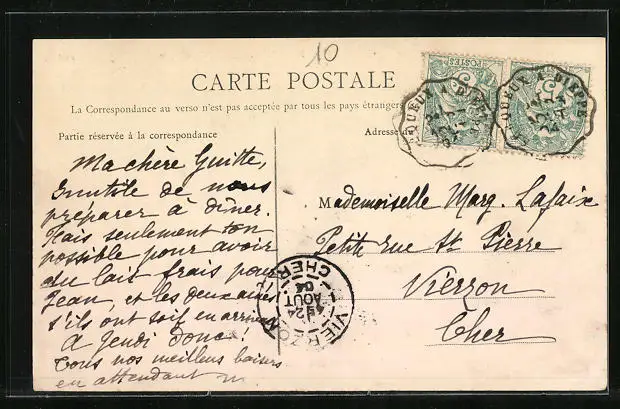 10
CARTE POSTALE
La Correspondance au verso n'est pas acceptée par tous les pays étrangers
Partie réservée à la correspondance
Adresse du
Ma chère Guitte,
Inutile de nous
préparer à dîner.
Mais seulement ton
possible pour avoir
du lait frais pour
Jean, et les deux aînés
s'ils ont soif en arrivant
A jeudi donc!
Tous nos meilleurs baisers
en attendant
Mademoiselle Marg. Lafaix
Petite rue St Pierre
Vierzon
Cher
VIERZON
24
AOUT
04
CHER
POSTES
A DIEPPE